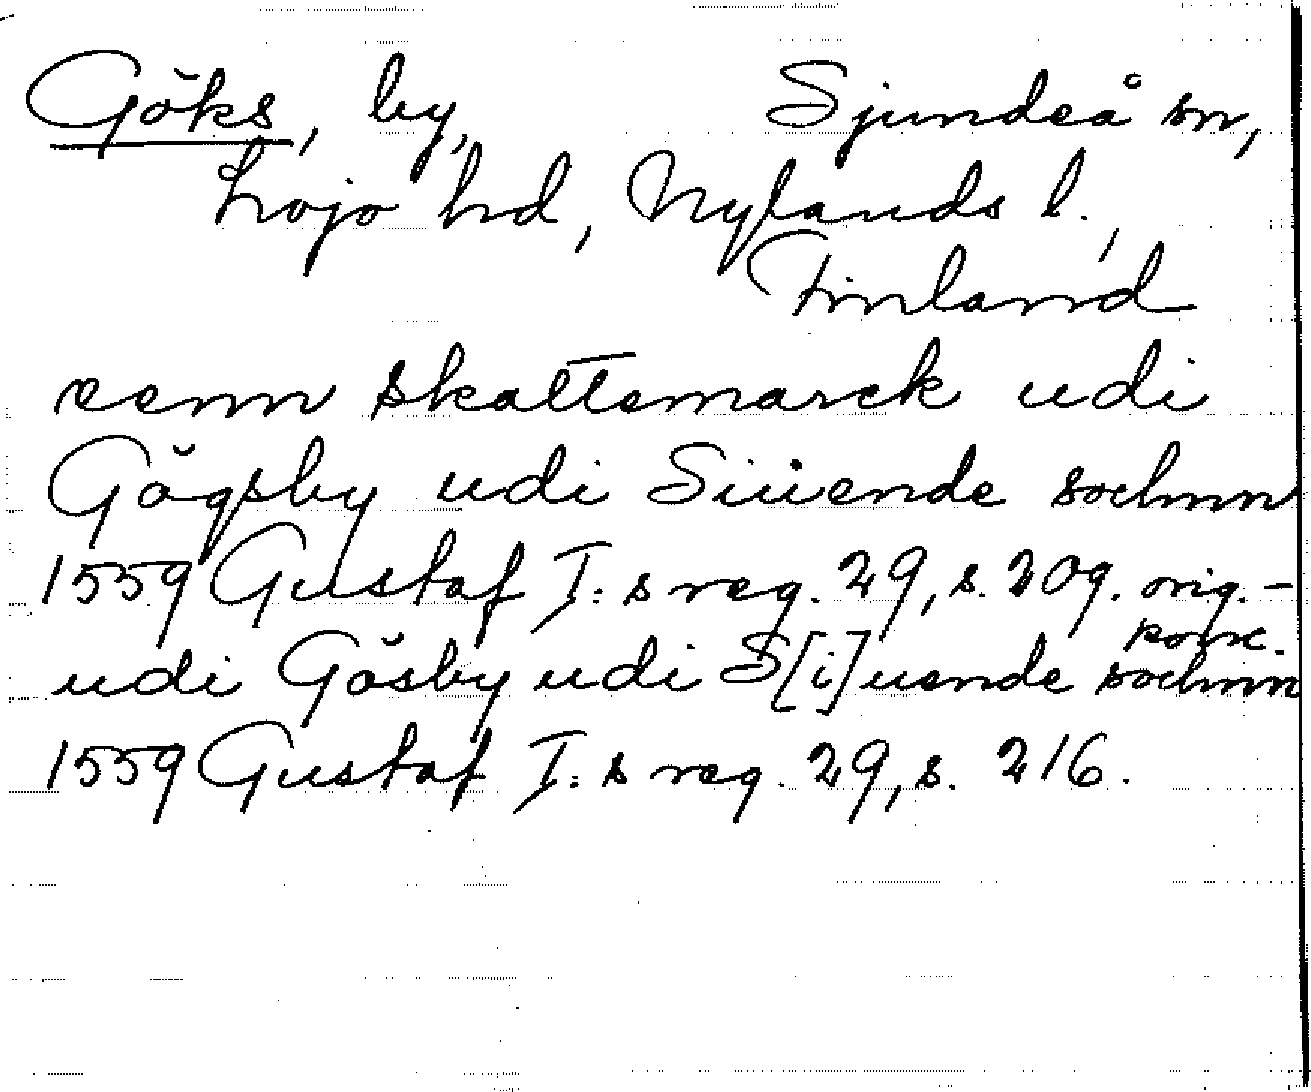 Göks, by, Sjundeå sn,
Lojo hd, Nylands l.,
Finland
eenn skattemarck udi
Gögsby udi Siuende sochnn
1559 Gustaf I:s reg. 29, s. 209. orig.-
konc.
udi Gösby udi S[i]uende sochnn
1559 Gustaf I:s reg. 29, s. 216.